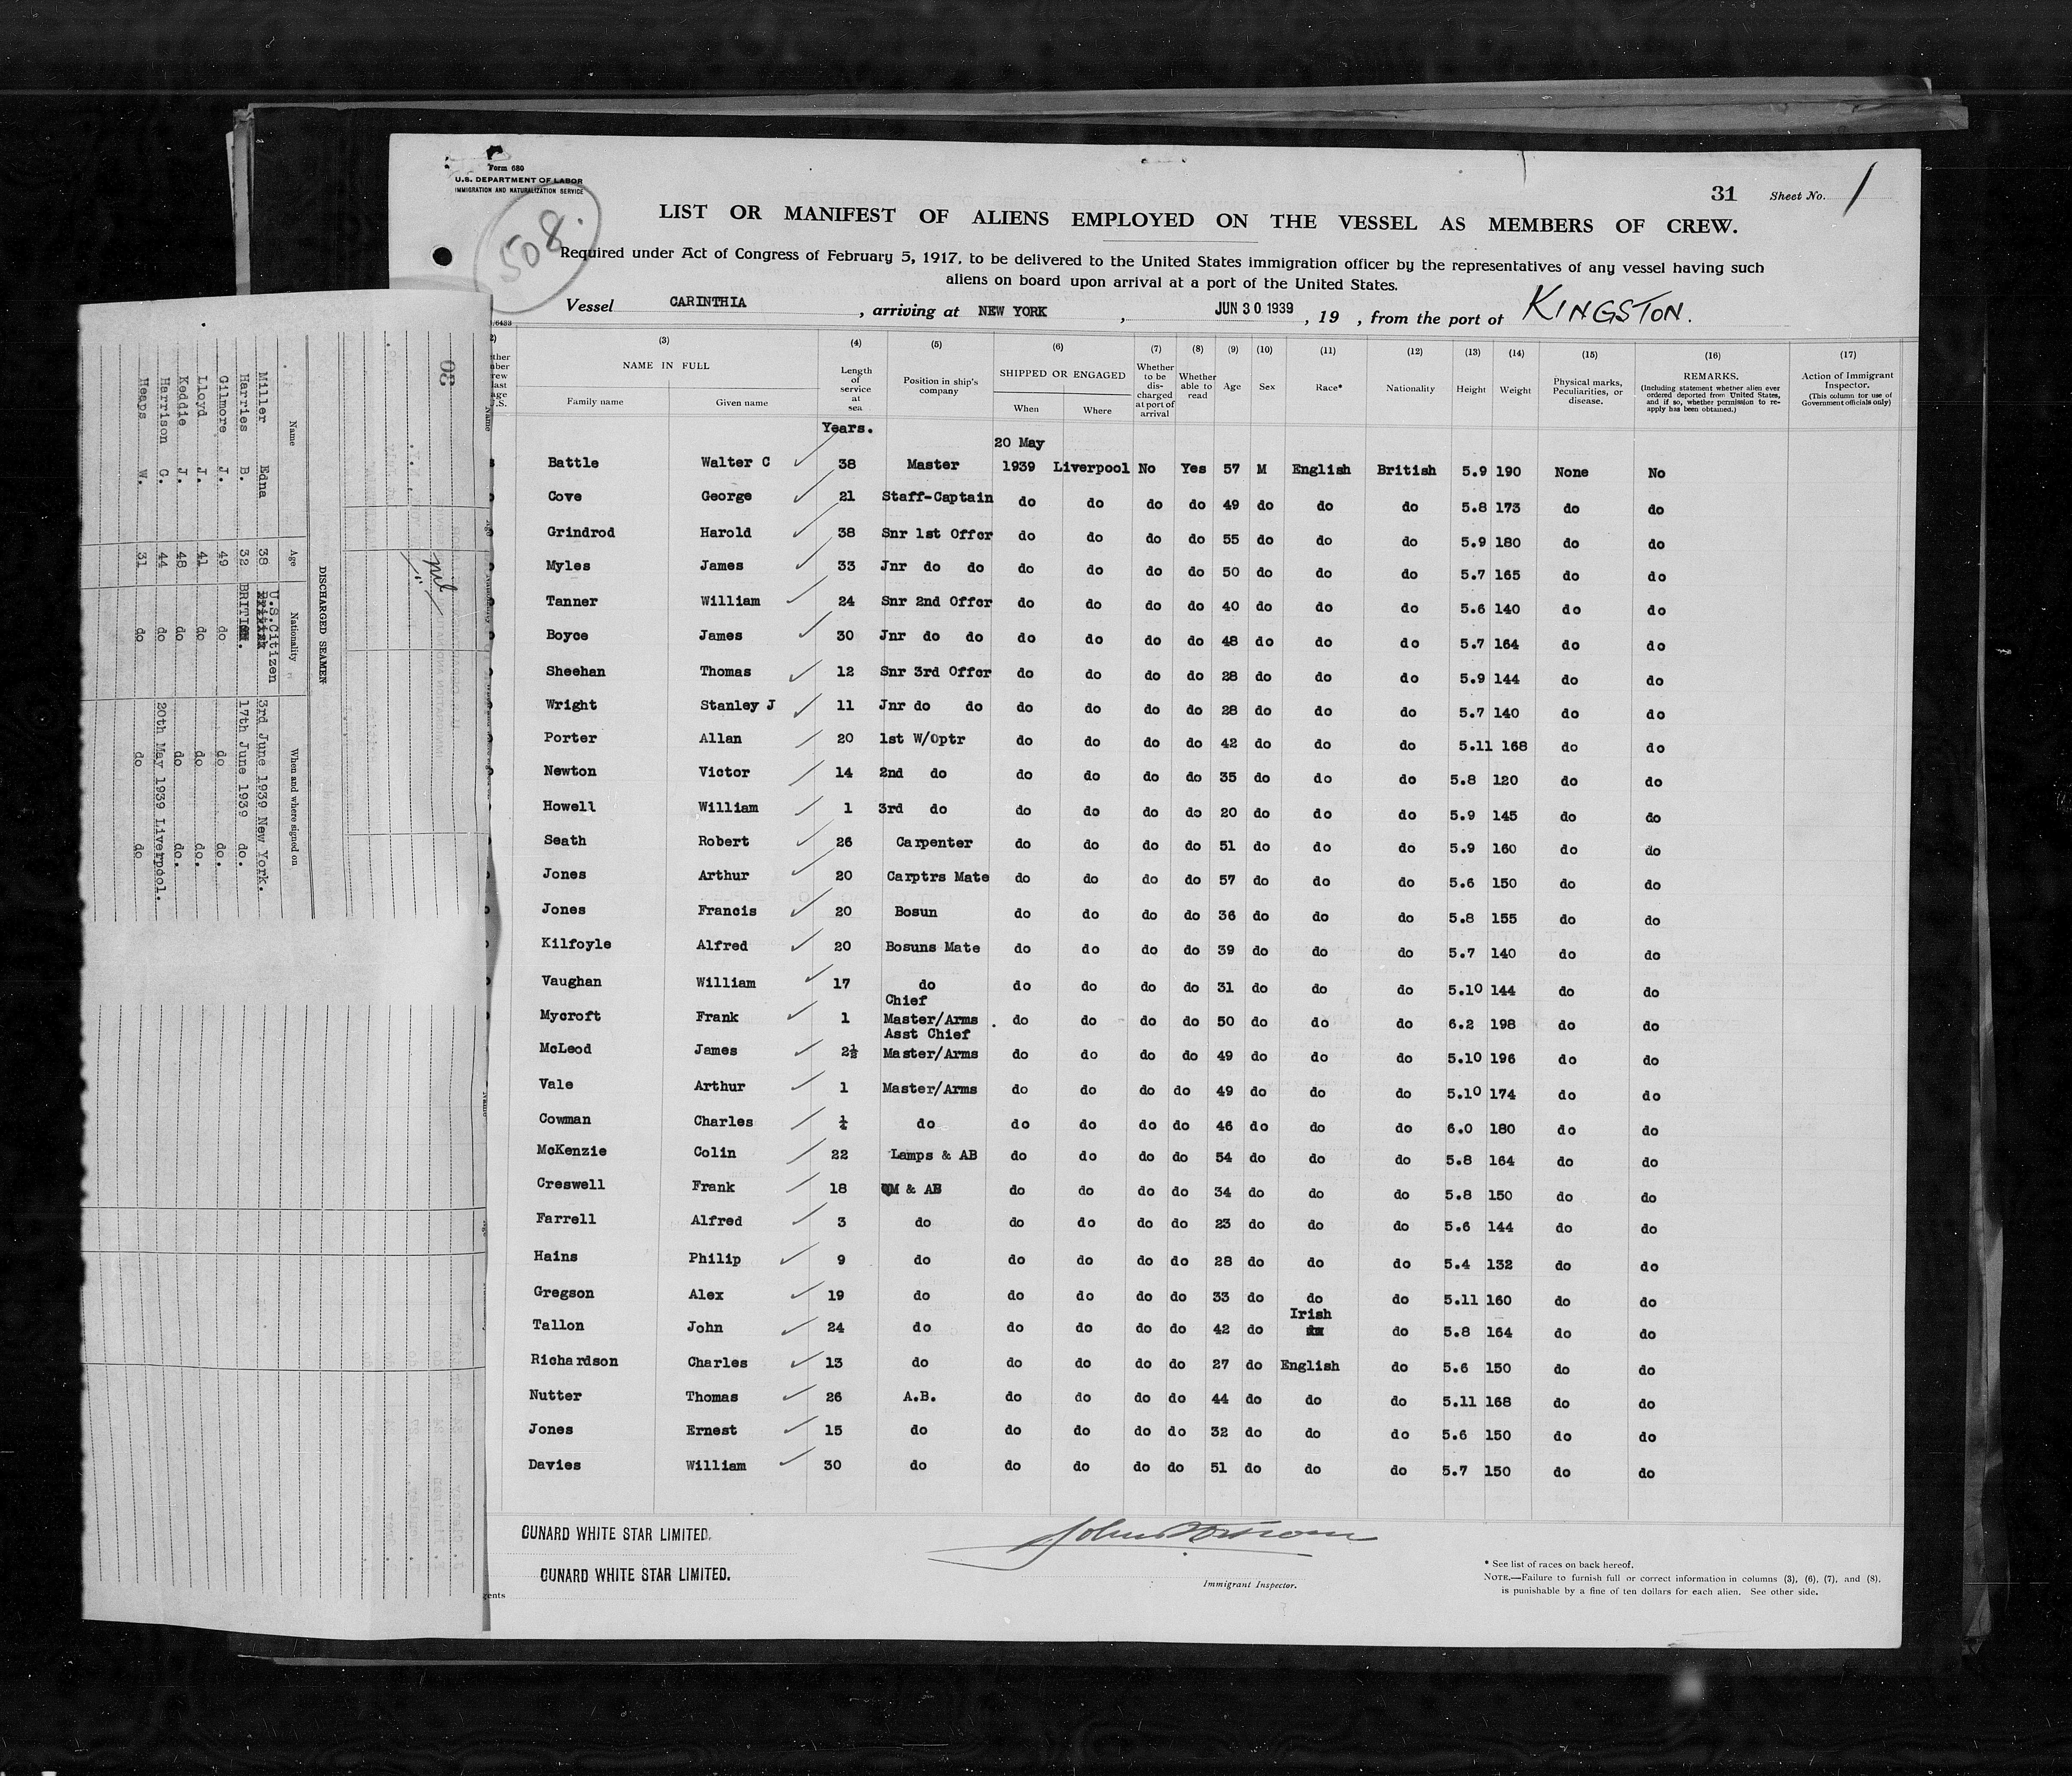 Form 680
U.S. DEPARTMENT OF LABOR
IMMIGRATION AND NATURALIZATION SERVICE
508.
31 Sheet No. 1
LIST OR MANIFEST OF ALIENS EMPLOYED ON THE VESSEL AS MEMBERS OF CREW.
Required under Act of Congress of February 5, 1917, to be delivered to the United States immigration officer by the representatives of any vessel having such
aliens on board upon arrival at a port of the United States.
Vessel CARINTHIA, arriving at NEW YORK, JUN 30 1939, 19 , from the port of KINGSTON.
(3) (4) (5) (6) (7) (8) (9) (10) (11) (12) (13) (14) (15) (16) (17)
NAME IN FULL Family name Given name Length of service at sea Position in ship's company SHIPPED OR ENGAGED When Where Whether to be discharged at port of arrival Whether able to read Age Sex Race* Nationality Height Weight Physical marks, Peculiarities, or disease. REMARKS. (Including statement whether alien ever ordered deported from United States, and if so, whether permission to reapply has been obtained.) Action of Immigrant Inspector. (This column for use of Government officials only)
Years.
20 May
Battle Walter C 38 Master 1939 Liverpool No Yes 57 M English British 5.9 190 None No
Cove George 21 Staff-Captain do do do do 49 do do do 5.8 173 do do
Grindrod Harold 38 Snr 1st Offcr do do do do 55 do do do 5.9 180 do do
Myles James 33 Jnr do do do do do do 50 do do do 5.7 165 do do
Tanner William 24 Snr 2nd Offcr do do do do 40 do do do 5.6 140 do do
Boyce James 30 Jnr do do do do do do 48 do do do 5.7 164 do do
Sheehan Thomas 12 Snr 3rd Offcr do do do do 28 do do do 5.9 144 do do
Wright Stanley J 11 Jnr do do do do do do 28 do do do 5.7 140 do do
Porter Allan 20 1st W/Optr do do do do 42 do do do 5.11 168 do do
Newton Victor 14 2nd do do do do do 35 do do do 5.8 120 do do
Howell William 1 3rd do do do do do 20 do do do 5.9 145 do do
Seath Robert 26 Carpenter do do do do 51 do do do 5.9 160 do do
Jones Arthur 20 Carptrs Mate do do do do 57 do do do 5.6 150 do do
Jones Francis 20 Bosun do do do do 36 do do do 5.8 155 do do
Kilfoyle Alfred 20 Bosuns Mate do do do do 39 do do do 5.7 140 do do
Vaughan William 17 do do do do do 31 do do do 5.10 144 do do
Chief
Mycroft Frank 1 Master/Arms do do do do 50 do do do 6.2 198 do do
Asst Chief
McLeod James 2½ Master/Arms do do do do 49 do do do 5.10 196 do do
Vale Arthur 1 Master/Arms do do do do 49 do do do 5.10 174 do do
Cowman Charles ¼ do do do do do 46 do do do 6.0 180 do do
McKenzie Colin 22 Lamps & AB do do do do 54 do do do 5.8 164 do do
Creswell Frank 18 QM & AB do do do do 34 do do do 5.8 150 do do
Farrell Alfred 3 do do do do do 23 do do do 5.6 144 do do
Hains Philip 9 do do do do do 28 do do do 5.4 132 do do
Gregson Alex 19 do do do do do 33 do do do 5.11 160 do do
Irish
Tallon John 24 do do do do do 42 do do 5.8 164 do do
Richardson Charles 13 do do do do do 27 do English do 5.6 150 do do
Nutter Thomas 26 A.B. do do do do 44 do do do 5.11 168 do do
Jones Ernest 15 do do do do do 32 do do do 5.6 150 do do
Davies William 30 do do do do do 51 do do do 5.7 150 do do
CUNARD WHITE STAR LIMITED.
CUNARD WHITE STAR LIMITED.
Immigrant Inspector.
* See list of races on back hereof.
NOTE.—Failure to furnish full or correct information in columns (3), (6), (7), and (8),
is punishable by a fine of ten dollars for each alien. See other side.
30
nil
DISCHARGED SEAMEN
Name Age Nationality When and where signed on
Miller Edna 38 U.S.Citizen 3rd June 1939 New York.
Harries B. 32 BRITISH. 17th June 1939 do.
Gilmore J. 49 do do do.
Lloyd J. 41 do do do.
Keddie J. 48 do do do.
Harrison G. 44 do 20th May 1939 Liverpool.
Heaps W. 31 do do do